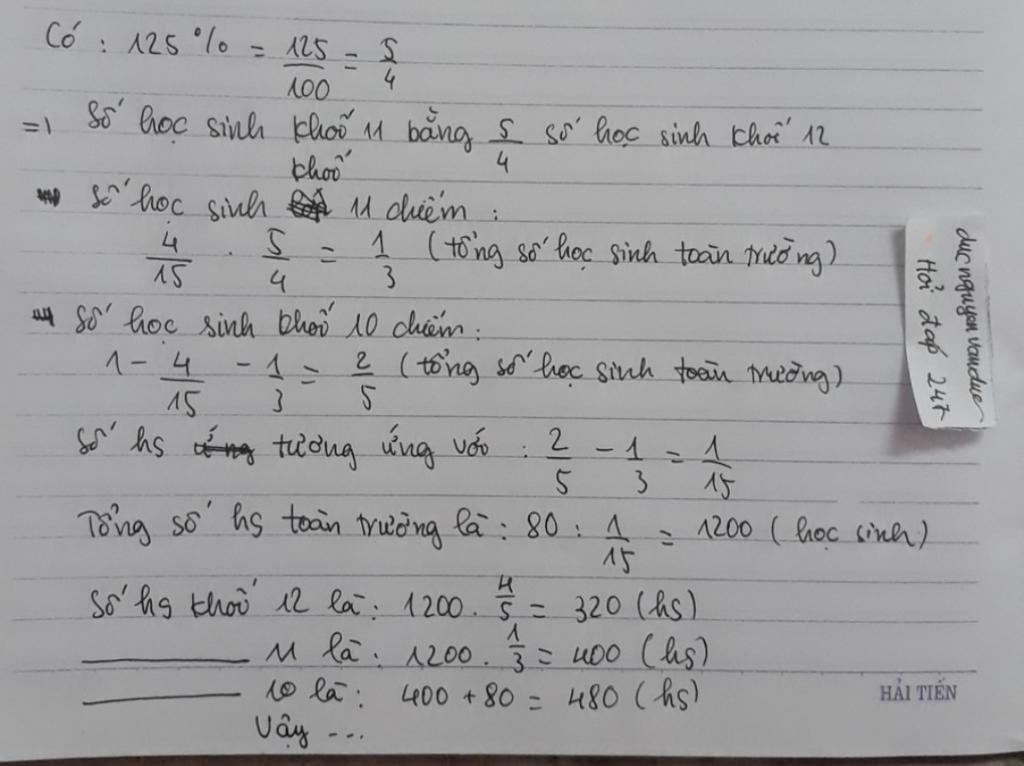 Có : 125 % = 125/100 = 5/4
=) Số học sinh khối 11 bằng 5/4 số học sinh khối 12
khối
Số học sinh 11 chiếm :
4/15 . 5/4 = 1/3 (tổng số học sinh toàn trường)
Số học sinh khối 10 chiếm :
1 - 4/15 - 1/3 = 2/5 (tổng số học sinh toàn trường)
Số hs tương ứng với : 2/5 - 1/3 = 1/15
Tổng số hs toàn trường là : 80 : 1/15 = 1200 (học sinh)
Số hs khối 12 là : 1200 . 4/5 = 320 (hs)
11 là : 1200 . 1/3 = 400 (hs)
10 là : 400 + 80 = 480 (hs)
Vậy ...
ducnguyenvanduc
Hỏi đáp 247
HẢI TIẾN